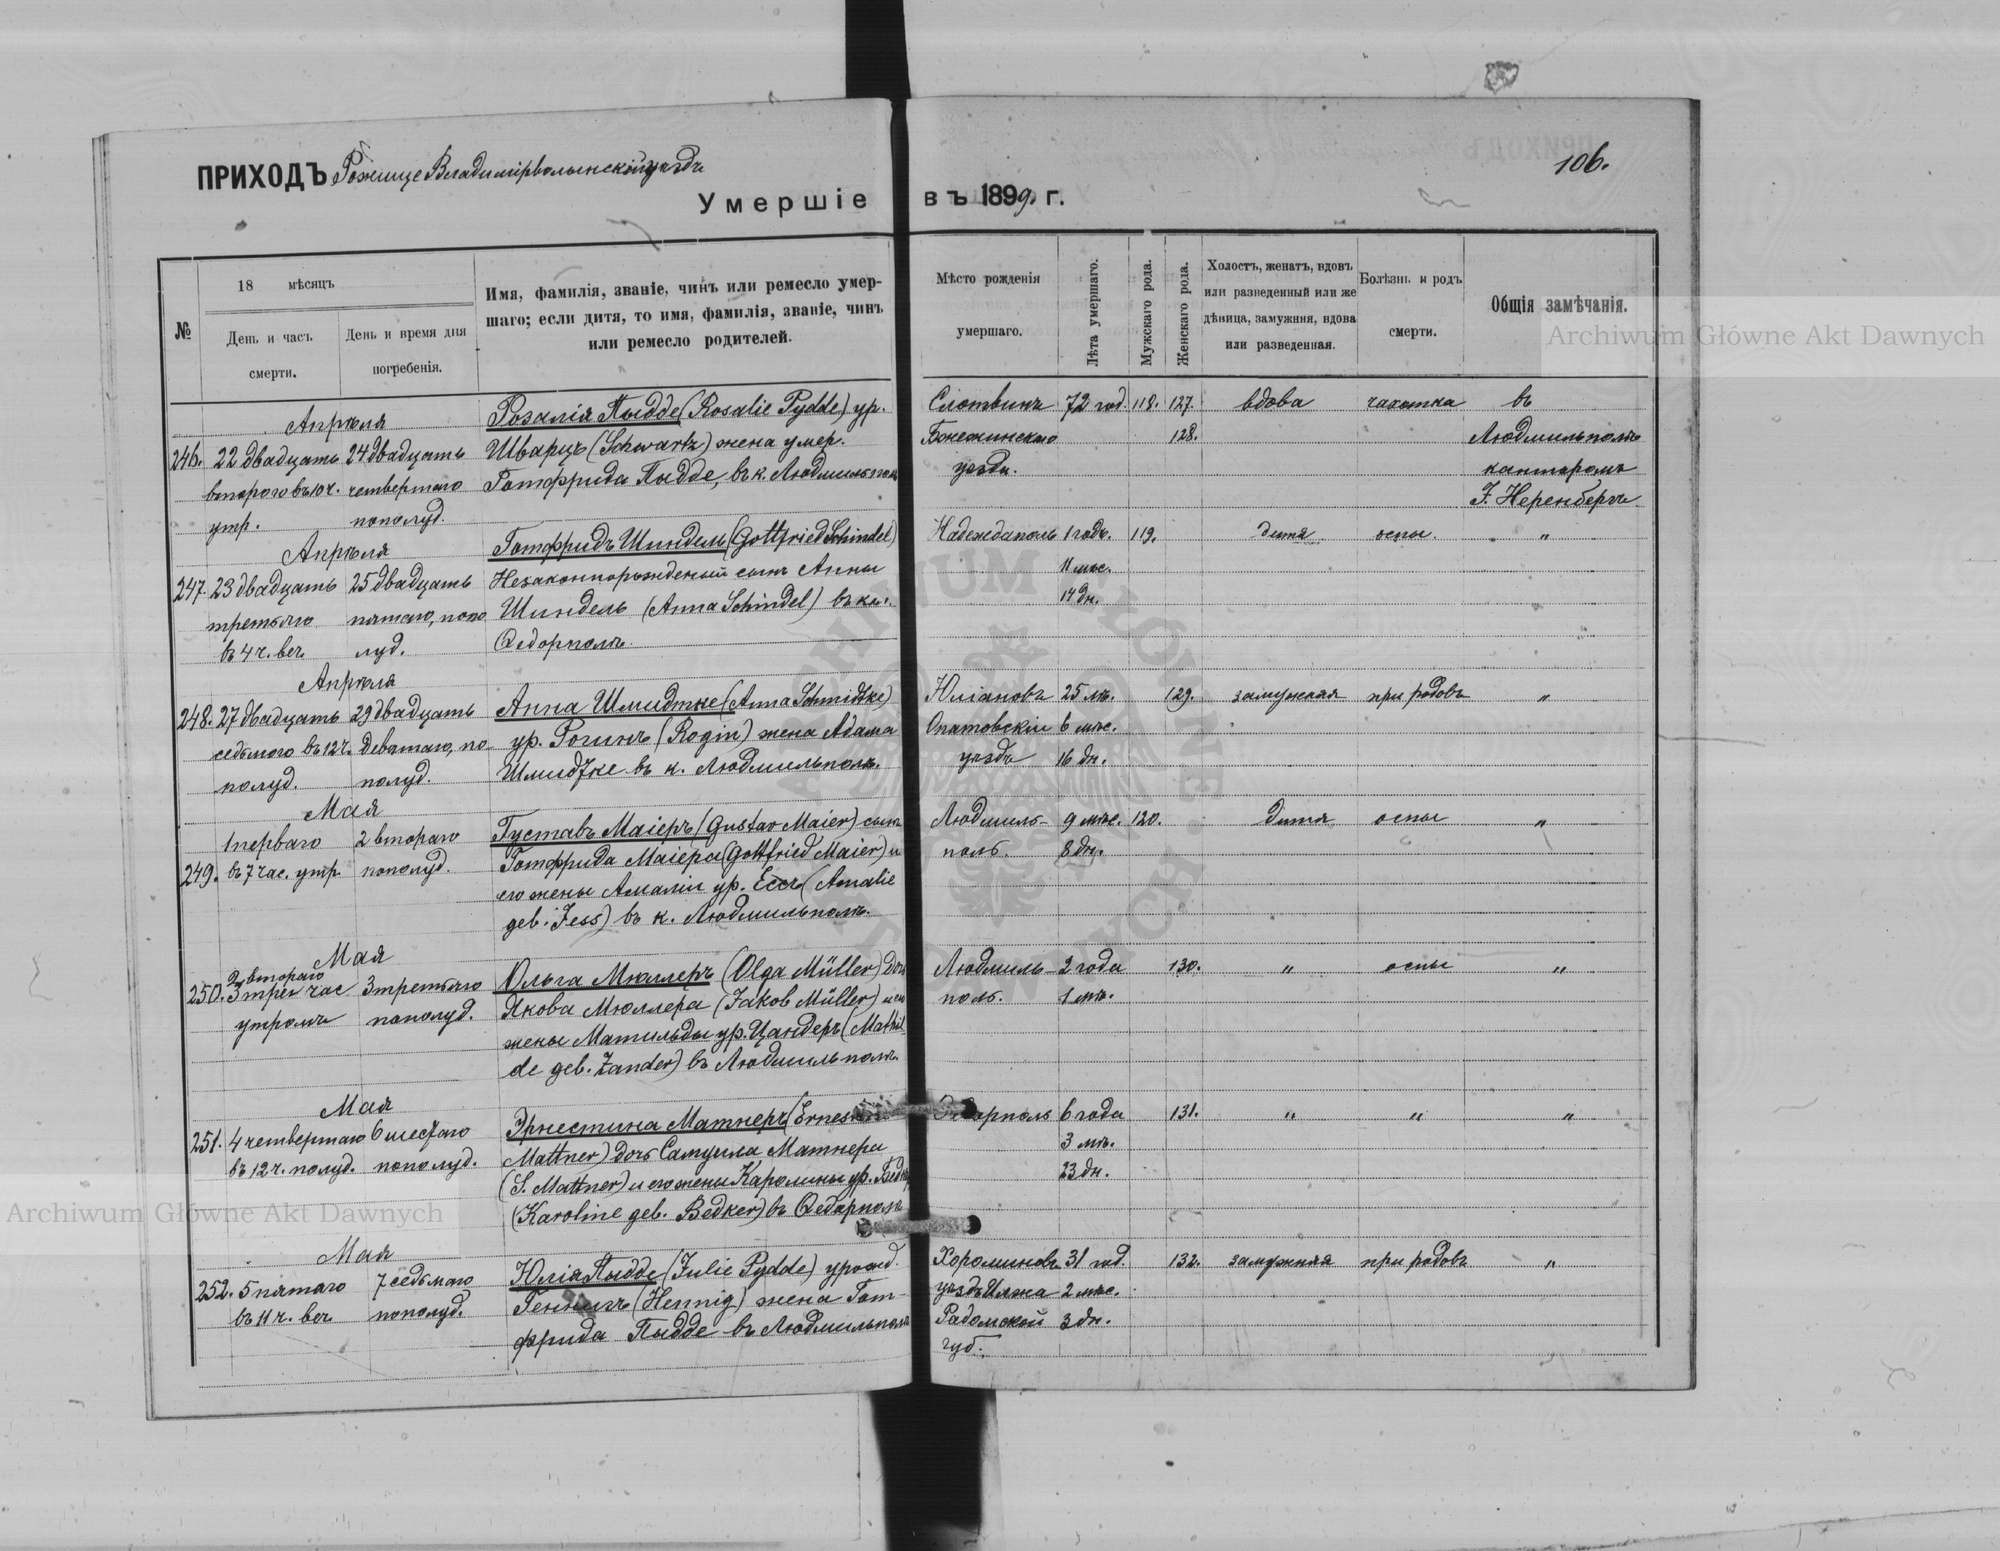 ПРИХОДЪ Рожище Владимірволынскій уѣздъ
106.
Умершіе въ 1899. г.
№
18 мѣсяцъ
День и часъ смерти.
День и время дня погребенія.
Имя, фамилія, званіе, чинъ или ремесло умер-
шаго; если дитя, то имя, фамилія, званіе, чинъ
или ремесло родителей.
Мѣсто рожденія
умершаго.
Лѣта умершаго.
Мужскаго рода.
Женскаго рода.
Холостъ, женатъ, вдовъ
или разведенный или же
дѣвица, замужняя, вдова
или разведенная.
Болѣзнь и родъ
смерти.
Общія замѣчанія.
Archiwum Główne Akt Dawnych
Апрѣля Розалія Пыдде (Rosalie Pydde) ур. Слотвинъ 72 год. 118. 127. вдова чахотка въ
246. 22 двадцать 24 двадцать Шварцъ (Schwartz) жена умер. 128. Людмильполѣ
второго въ 10 ч. четвертаго Готфрида Пыдде, въ к. Людмильполѣ уѣзда. канторомъ
утр. пополуд. Неренбергъ
Апрѣля Готфридъ Шиндель (Gottfried Schindel) Надеждаполь 1 годъ. 119. дитя оспы. "
247. 23 двадцать 25 двадцать Незаконнорожденый сынъ Анны 11 мѣс.
третьяго пятаго, попо Шиндель (Anna Schindel) въ кол. 14 дн.
въ 4 ч. веч. луд.
Апрѣля
Анна Шмидтке (Anna Schmidtke) Юліановъ 25 лѣ. 129. замужняя при родовъ "
248. 27 двадцать 29 двадцать ур. Рогинъ (Rogin) жена Адама Опатовскій 6 мѣс.
седьмого въ 12 ч. девятаго, по Шмидтке въ к. Людмильполѣ. уѣздъ 16 дн.
полуд. полуд.
Мая
1 перваго 2 второго Густавъ Маіеръ (Gustav Maier) сынъ Людмиль- 9 мѣс. 120. дитя оспы "
249. въ 7 час. утр. пополуд. Готфрида Маіера (Gottfried Maier) и поль. 8 дн.
его жены Амаліи ур. Ессъ (Amalie
geb. Jess) въ к. Людмильполѣ.
Мая
2 второго
250. 3 три час 3 третьяго Ольга Мюллеръ (Olga Müller) дочь Людмиль- 2 года 130. " оспы "
утромъ пополуд. Якова Мюллера (Jakob Müller) и его поль. 1 мѣ.
жены Матильды ур. Цандеръ (Mathil
de geb. Zander) въ Людмильполѣ.
Мая Эрнестина Матнеръ 6 года 131. " " "
251. 4 четвертаго 6 шестаго Mattner) дочь Самуила Матнера 3 мѣ.
въ 12 ч. полуд. пополуд. (S. Mattner) и его жены Каролины ур. 23 дн.
(Karoline geb. Bedker) въ
Archiwum Główne Akt Dawnych
Мая Юлія Пыдде (Julie Pydde) урожд. Хороминовъ 31 год. 132. замужняя при родовъ "
252. 5 пятаго 7 седьмаго Геннигъ (Hennig) жена Гот- уѣздъ Илжа 2 мѣс.
въ 11 ч. веч. пополуд. фрида Пыдде въ Людмильполѣ Радомской 3 дн.
губ.